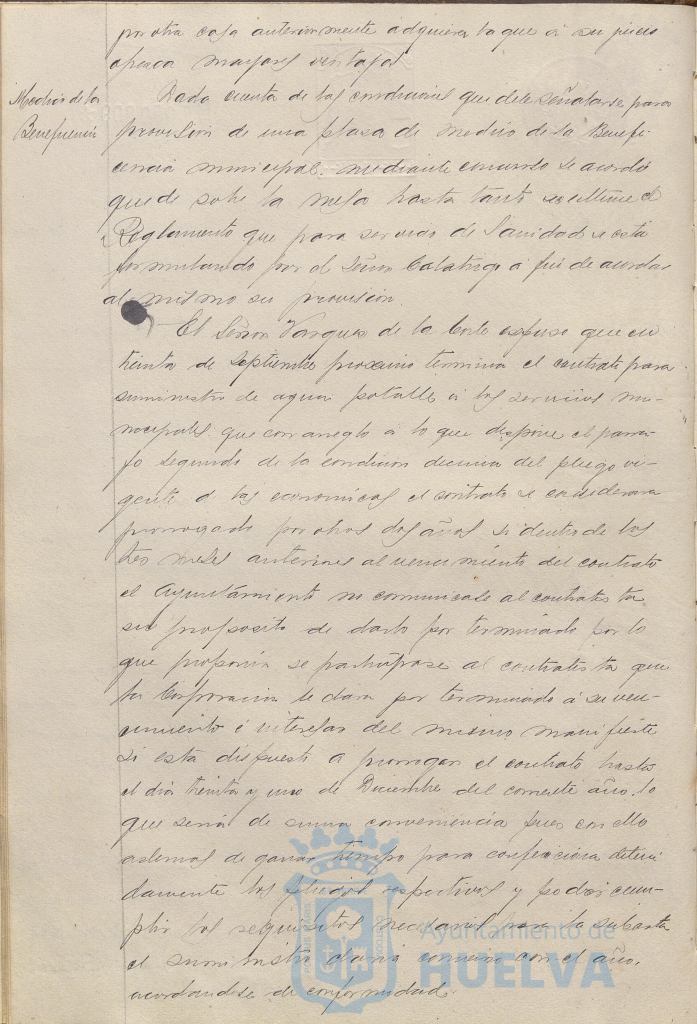 por otra casa anteriormente adquiera lo que á su juicio
ofrezca mayores ventajas
Medicos de la
Beneficencia
Dada cuenta de las condiciones que debe señalarse para
provision de una plaza de medico de la Benefi
cencia municipal mediante concurso se acordó
quede sobre la mesa hasta tanto se ultime el
Reglamento que para servicio de Sanidad se está
formulando por el Señor á fin de acordar
al mismo su provision.
El Señor Vazquez de la Corte expuso que en
treinta de Septiembre proximo termina el contrato para
suministro de agua potable á los servicios mu-
nicipales que con arreglo á lo que dispone el parra-
fo segundo de la condicion decima del pliego vi-
gente de las economicas el contrato se considerara
prorrogado por otros dos años si dentro de los
tres meses anteriores al vencimiento del contrato
el Ayuntamiento no comunicase al contratista
su proposito de darlo por terminado por lo
que proponia se participase al contratista que
la Corporacion lo dara por terminado á su ven-
cimiento é interesar del mismo manifieste
si está dispuesto a prorrogar el contrato hasta
el dia treinta y uno de Diciembre del corriente año, lo
que seria de suma conveniencia pues con ello
ademas de ganar tiempo para confeccionar deteni
damente los pliegos respectivos y poder cum-
plir los requisitos necesarios para la subasta
el suministro daria comienzo con el año,
acordandose de conformidad.
Ayuntamiento de
HUELVA